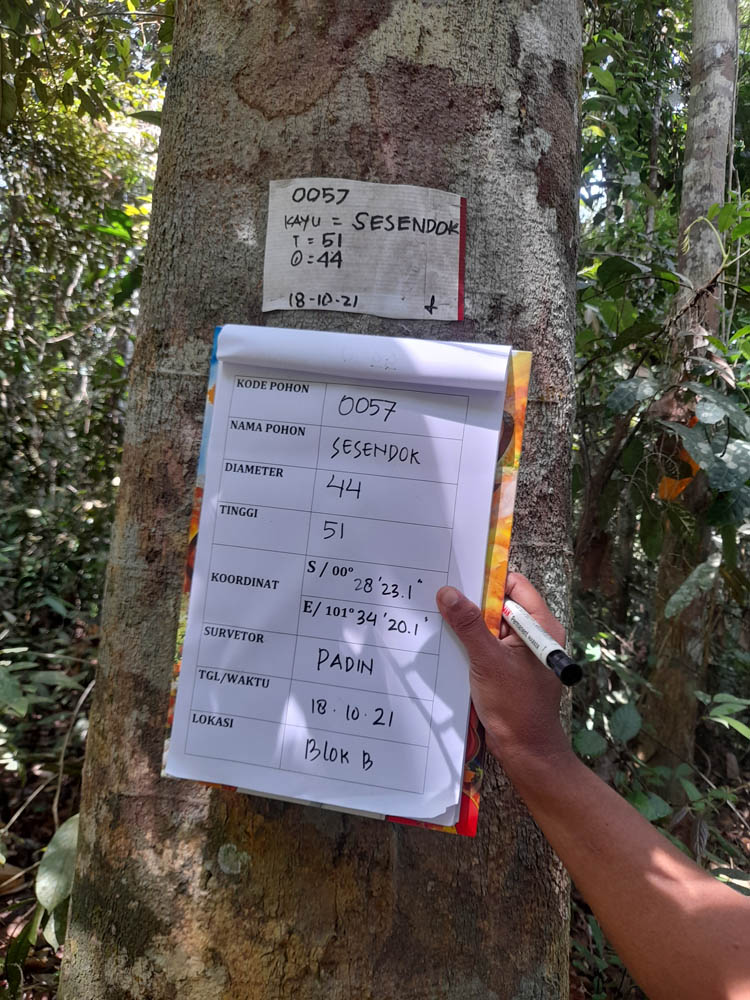 0057
KAYU = SESENDOK
T = 51
Ø = 44
18-10-21
KODE POHON 0057
NAMA POHON SESENDOK
DIAMETER 44
TINGGI 51
KOORDINAT S / 00° 28'23.1"
E/ 101° 34'20.1"
SURVETOR PADIN
TGL/WAKTU 18.10.21
LOKASI Blok B